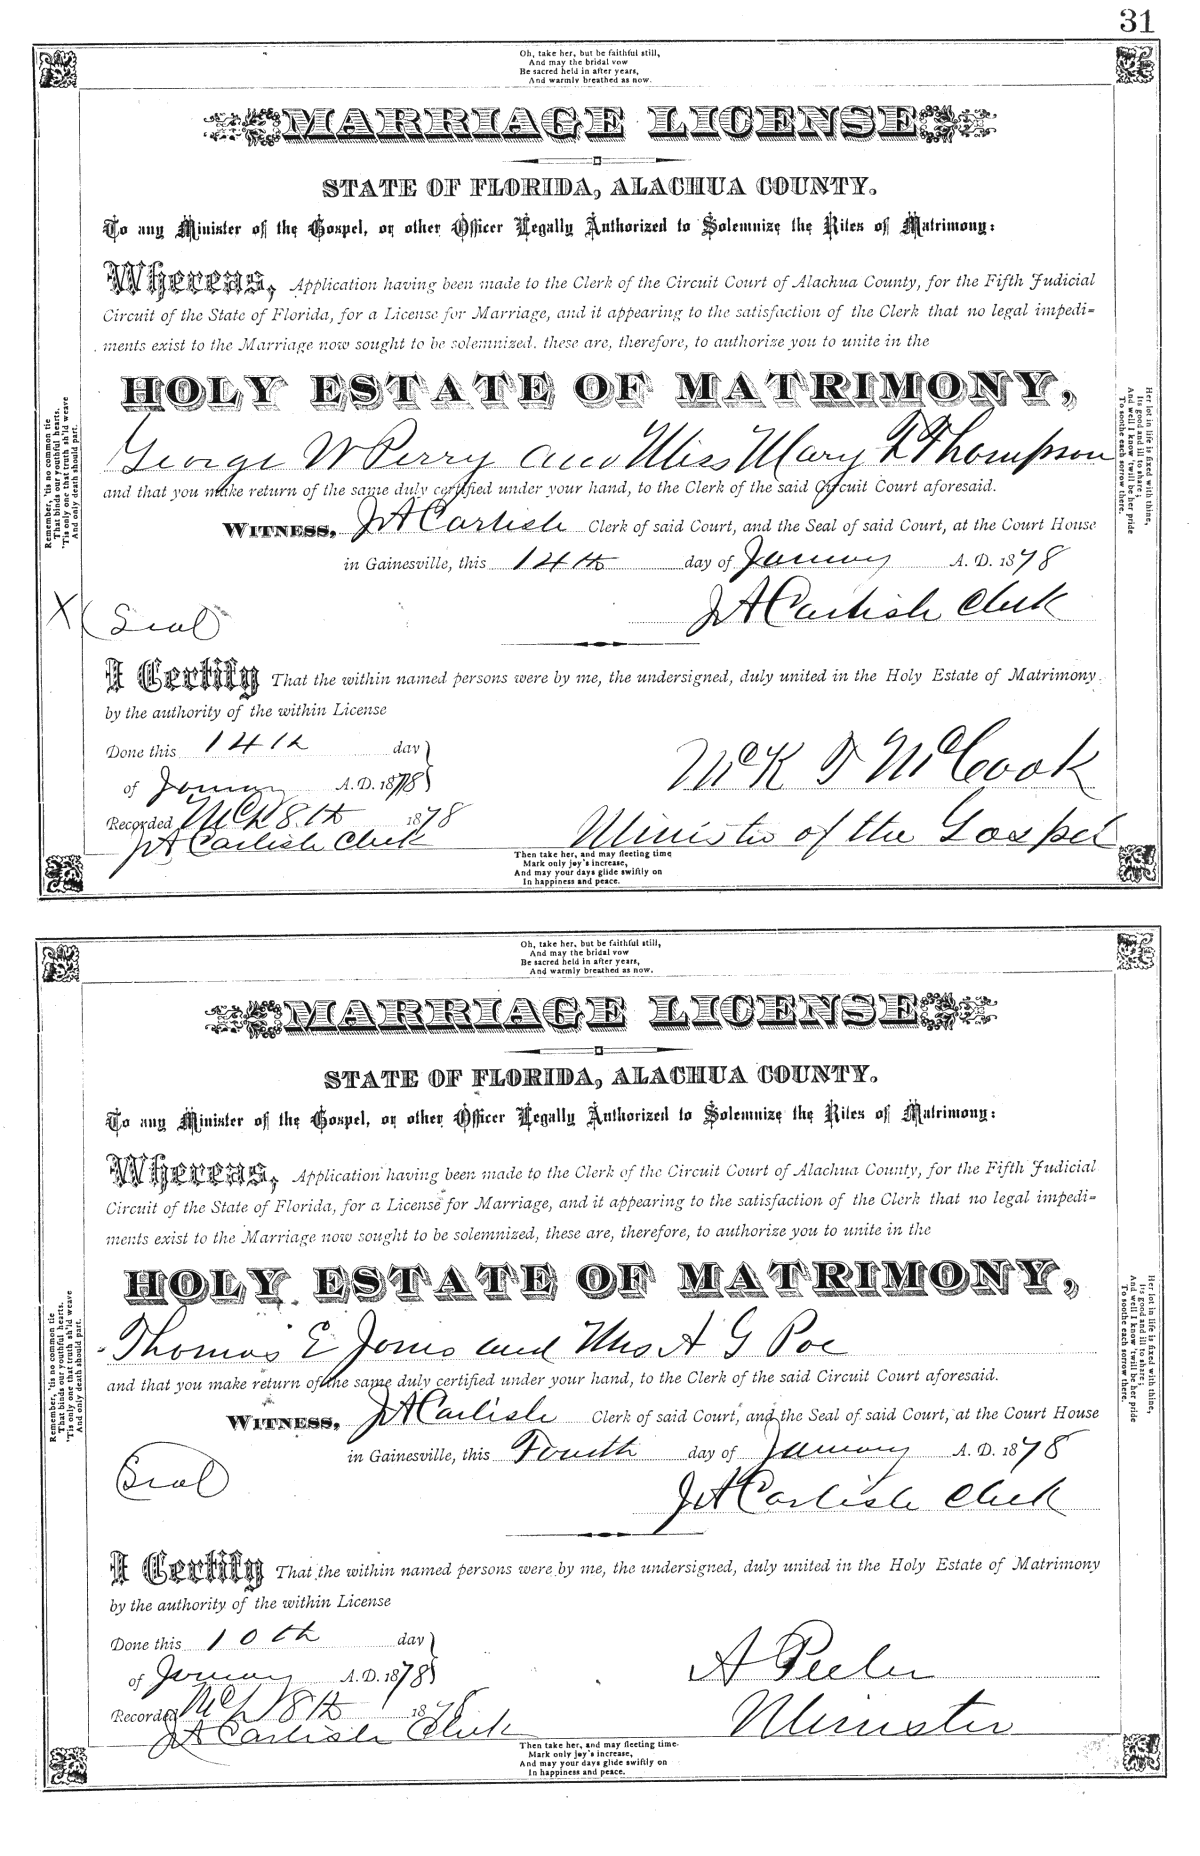 31
Oh, take her, but be faithful still,
And may the bridal vow
Be sacred held in after years,
And warmly breathed as now.
MARRIAGE LICENSE
STATE OF FLORIDA, ALACHUA COUNTY.
To any Minister of the Gospel, or other Officer Legally Authorized to Solemnize the Rites of Matrimony:
Whereas, Application having been made to the Clerk of the Circuit Court of Alachua County, for the Fifth Judicial
Circuit of the State of Florida, for a License for Marriage, and it appearing to the satisfaction of the Clerk that no legal impedi-
ments exist to the Marriage now sought to be solemnized, these are, therefore, to authorize you to unite in the
HOLY ESTATE OF MATRIMONY,
George W Perry and Miss Mary F Thompson
and that you make return of the same duly certified under your hand, to the Clerk of the said Circuit Court aforesaid.
WITNESS, J A Carlisle Clerk of said Court, and the Seal of said Court, at the Court House
in Gainesville, this 14th day of January A. D. 1878
J A Carlisle Clerk
X (Seal)
I Certify That the within named persons were by me, the undersigned, duly united in the Holy Estate of Matrimony
by the authority of the within License
Done this 14th day
of January A. D. 1878
McK F McCook
Recorded Mch 8th 1878
J A Carlisle Clerk
Minister of the Gospel
Then take her, and may fleeting time
Mark only joy's increase,
And may your days glide swiftly on
In happiness and peace.
Remember, 'tis no common tie
That binds our youthful hearts,
'Tis only one that truth sh'ld weave
And only death should part.
Her lot in life is fixed with thine,
Its good and ill to share;
And well I know 'twill be her pride
To soothe each sorrow there.
Oh, take her, but be faithful still,
And may the bridal vow
Be sacred held in after years,
And warmly breathed as now.
MARRIAGE LICENSE
STATE OF FLORIDA, ALACHUA COUNTY.
To any Minister of the Gospel, or other Officer Legally Authorized to Solemnize the Rites of Matrimony:
Whereas, Application having been made to the Clerk of the Circuit Court of Alachua County, for the Fifth Judicial
Circuit of the State of Florida, for a License for Marriage, and it appearing to the satisfaction of the Clerk that no legal impedi-
ments exist to the Marriage now sought to be solemnized, these are, therefore, to authorize you to unite in the
HOLY ESTATE OF MATRIMONY,
Thomas E Jones and Mrs A G Poe
and that you make return of the same duly certified under your hand, to the Clerk of the said Circuit Court aforesaid.
WITNESS, J A Carlisle Clerk of said Court, and the Seal of said Court, at the Court House
in Gainesville, this Fourth day of January A. D. 1878
(Seal)
J A Carlisle Clerk
I Certify That the within named persons were by me, the undersigned, duly united in the Holy Estate of Matrimony
by the authority of the within License
Done this 10th day
of January A. D. 1878
A Peeler
Recorded Mch 8th 1878
J A Carlisle Clerk
Minister
Then take her, and may fleeting time
Mark only joy's increase,
And may your days glide swiftly on
In happiness and peace.
Remember, 'tis no common tie
That binds our youthful hearts,
'Tis only one that truth sh'ld weave
And only death should part.
Her lot in life is fixed with thine,
Its good and ill to share;
And well I know 'twill be her pride
To soothe each sorrow there.